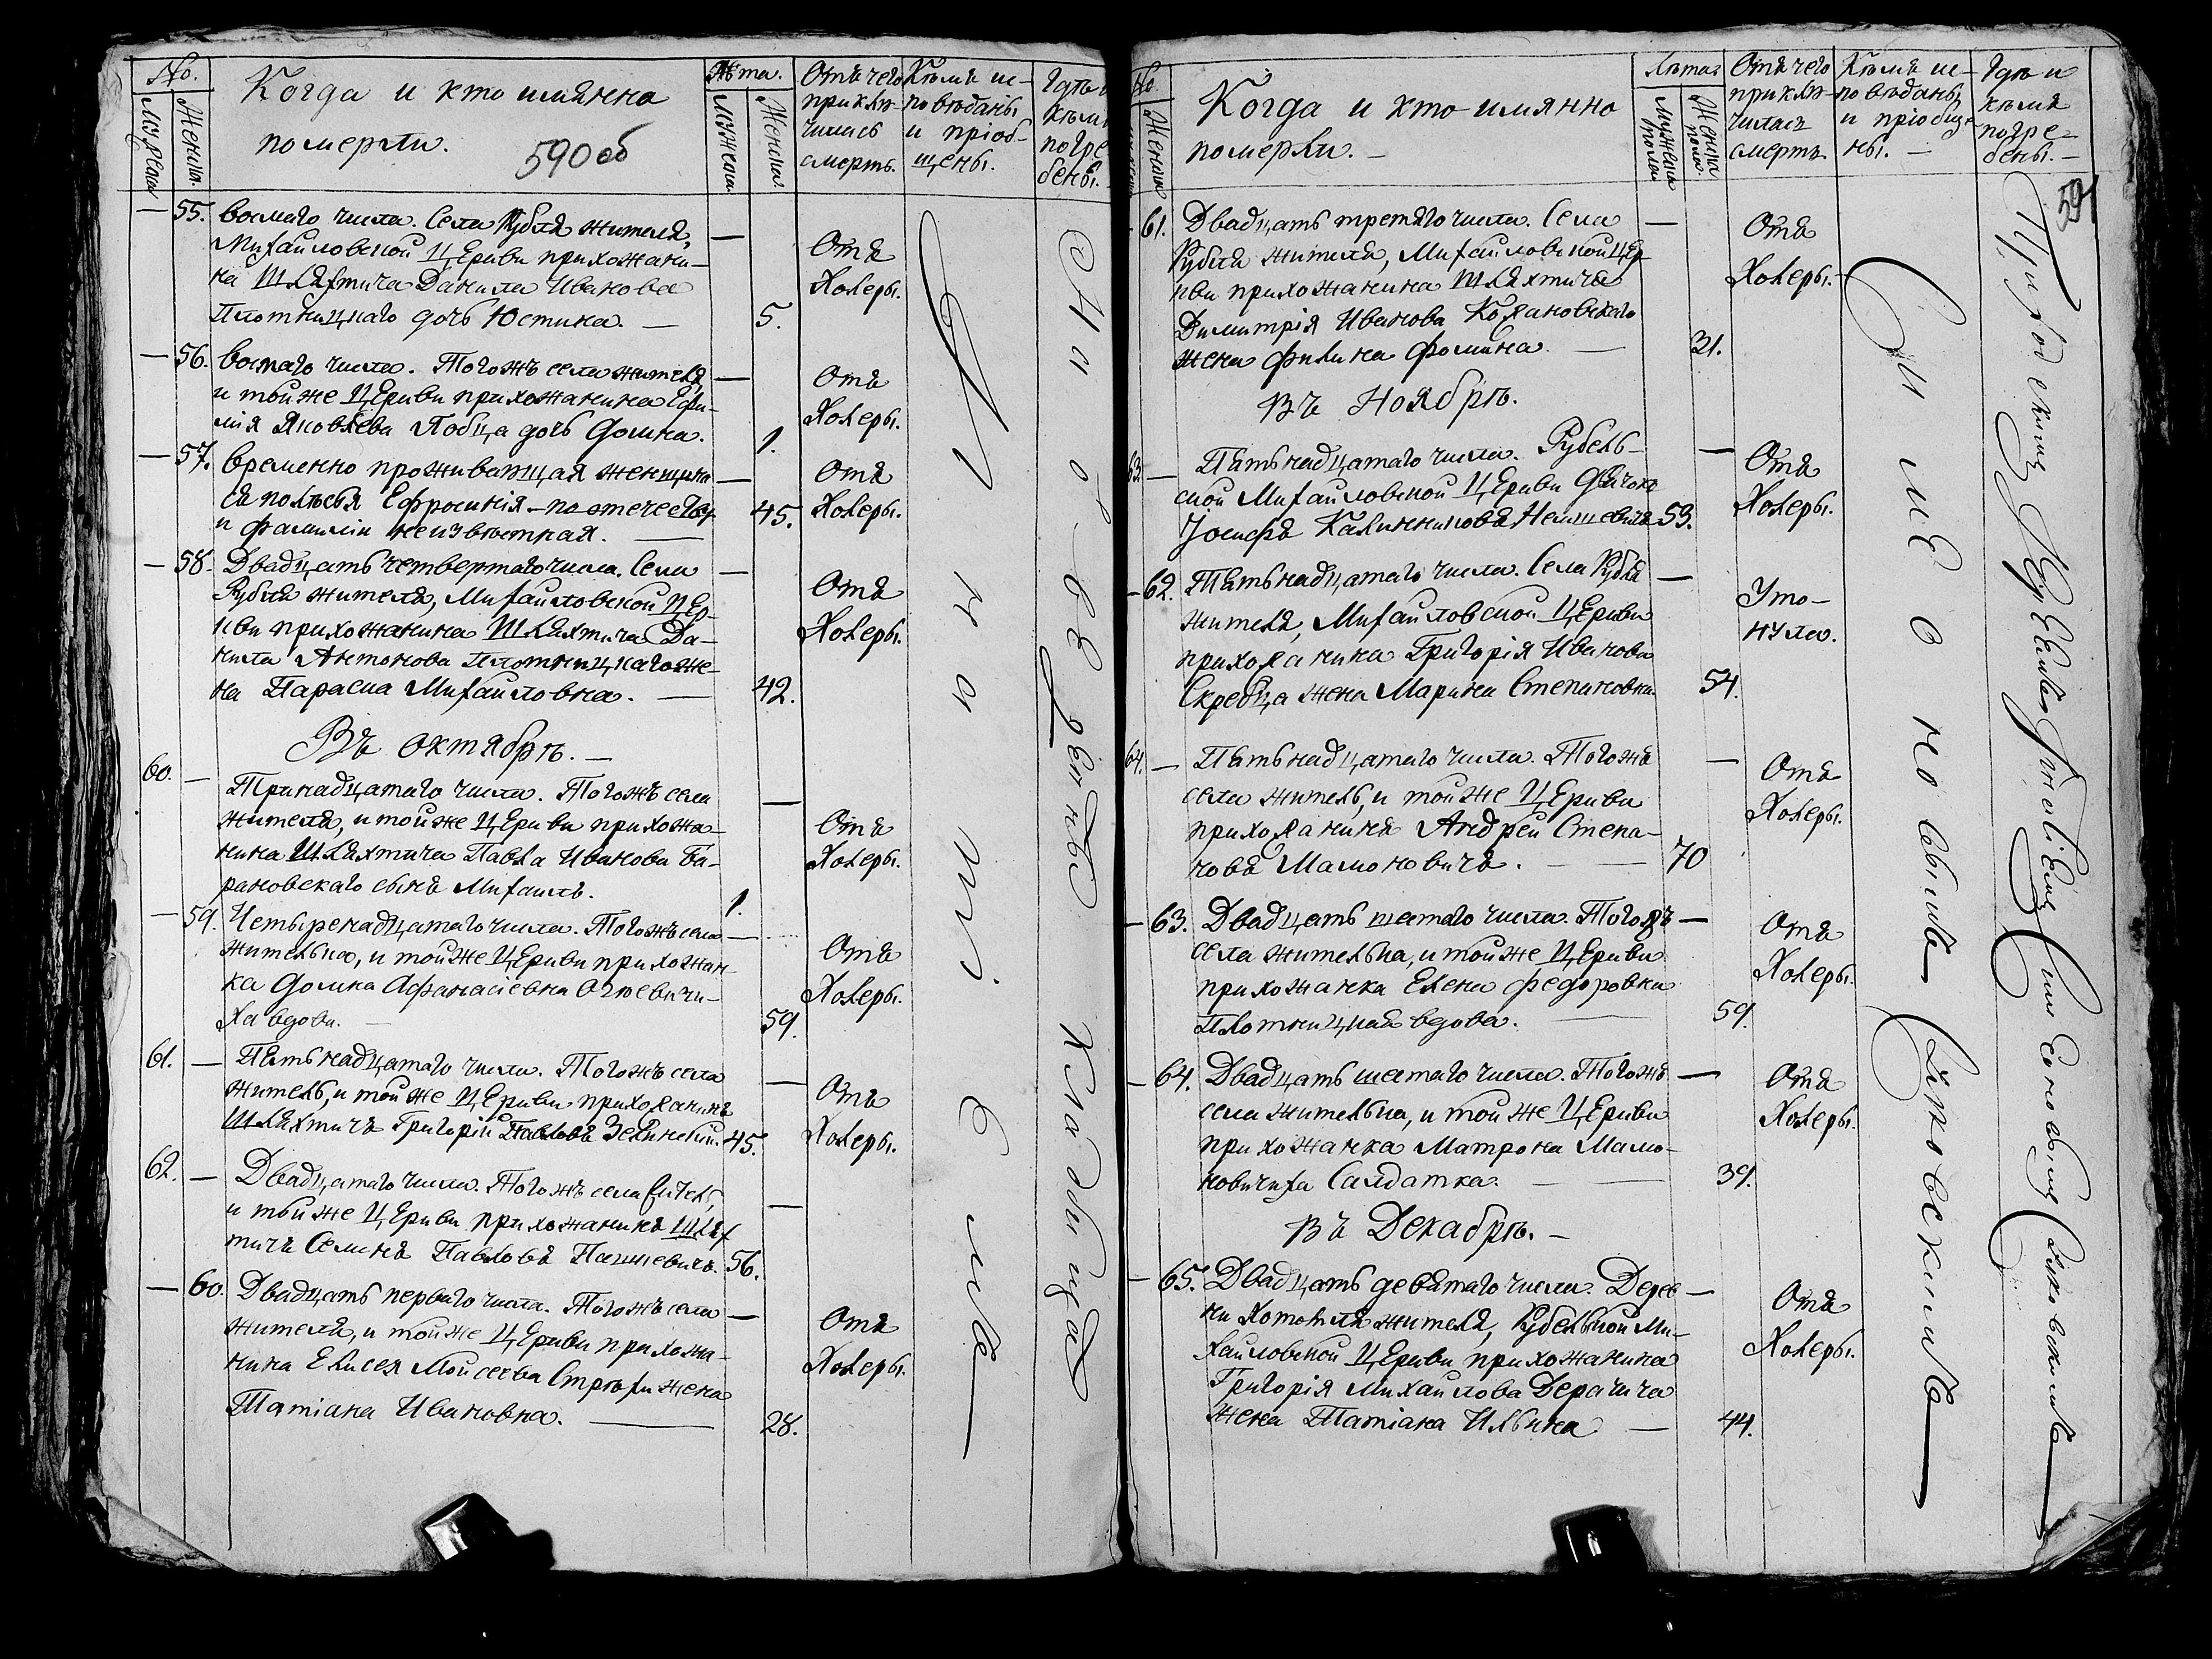 No.
Мужеска
Женска.
Когда и кто имянно
померли.
590об
Лѣта.
Мужеска
Женска
Отъ чего
приклю-
чилась
смерть.
Кѣмъ ис-
повѣданы
и пріоб-
щены.
Гдѣ и
кѣмъ
погре
бены.
— 55. восмаго числа. Села Рубля жителя, —
Михайловской Церкви прихожани-
на Шляхтича Данила Иванова
Плотницкаго дочь Юстина. — 5.
Отъ
Холеры.
— 56. Того жъ села жителя, —
и той же Церкви прихожанина Ефи-
мія Яковлева дочь Домна. 1.
Отъ
Холеры.
— 57. временно проживающая женщина —
съ полѣсья Ефросинія – по отечеству
и фамиліи неизвѣстная. — 45.
Отъ
Холеры.
— 58. Двадцать четвертаго числа. Села —
Рубля жителя, Михайловской Цер-
кви прихожанина Шляхтича Да-
нила Антонова Плотницкаго же-
на Параска Михайловна. — 42.
Отъ
Холеры.
Въ Октябрѣ. —
60. — Тринадцатаго числа. Того жъ села
жителя, и той же Церкви прихожа- —
нина Шляхтича Павла Иванова Ба-
рановскаго сынъ Михаилъ. 1.
Отъ
Холеры.
— 59. Четыренадцатаго числа. Того жъ села —
жителька, и той же Церкви прихожан-
ка Домна Афанасіевна
вдова. — 59.
Отъ
Холеры.
61. — Пятьнадцатаго числа. Того жъ села
житель, и той же Церкви прихожанинъ —
Шляхтичъ Григорій Павловъ Зелинскій. 45.
Отъ
Холеры.
62. — Двадцатаго числа. Того жъ села житель,
и той же Церкви прихожанинъ Шлях —
тичъ Семенъ Павловъ Пашкевичъ. 56.
— 60. Двадцать перваго числа. Того жъ села —
жителя, и той же Церкви прихожа-
нина Елисея Моисеева жена
Татіана Ивановна. — 28.
Отъ
Холеры.
На
кладбищѣ
No
Женска
Когда и кто имянно
померли. —
Лѣта
Мужеска
пола
Женска
пола
Отъ чего
приклю-
чилась
смерть.
Кѣмъ ис-
повѣданы,
и пріобще-
ны. —
Гдѣ и
кѣмъ
погре-
бены. —
- 61. Двадцать третяго числа. Села —
Рубля жителя, Михайловской Цер
кви прихожанина Шляхтича
Димитрія Иванова
жена Фомина. — 31.
Отъ
Холеры.
Въ Ноябрѣ.
63. — Пятьнадцатаго числа. Рубель- —
ской Михайловской Церкви Дьячокъ
Іосифъ Калинниковъ 53.
Отъ
Холеры.
- 62. Пятьнадцатаго числа. Села Рубля —
жителя, Михайловской Церкви
прихожанина Григорія Иванова
Скребца жена Марина Степановна 54.
Уто-
нула.
64. — Пятьнадцатаго числа. Того жъ —
села житель, и той же Церкви
прихожанинъ Андрей Степа-
новъ Мамоновичъ. — — 70
Отъ
Холеры.
- 63. Двадцать шестаго числа. Того жъ —
села жителька, и той же Церкви
прихожанка Елена Федоровна
Плотницкая вдова. — 59.
Отъ
Холеры.
- 64. Двадцать шестаго числа. Того жъ —
села жителька, и той же Церкви
прихожанка Матрона Мамо-
новичиха Салдатка. — — 39.
Отъ
Холеры.
Въ Декабрѣ. —
- 65. Двадцать девятаго числа. Дерев —
ни Хотомля жителя, Рубельской Ми-
хайловской Церкви прихожанина
Григорія Михайлова Дерачича
жена Татіана Ильина — 44.
Отъ
Холеры.
Симеономъ
Приходскимъ